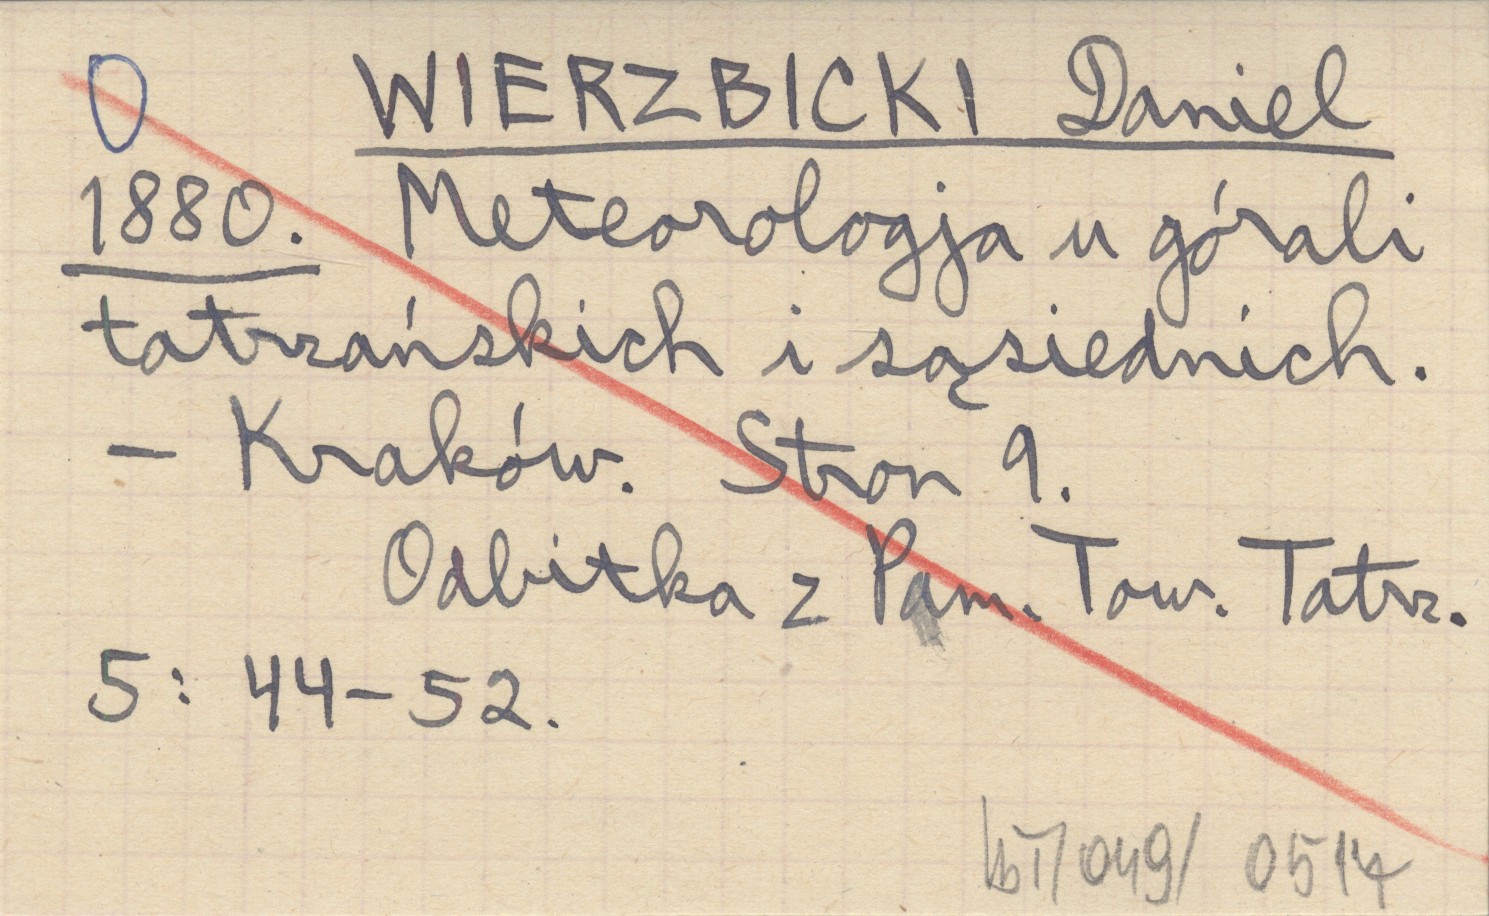 O WIERZBICKI Daniel
1880. Meteorologja u górali
tatrzańskich i sąsiednich.
- Kraków. Stron 9.
Odbitka z Pam. Tow. Tatrz.
5: 44-52.
/049/ 0514